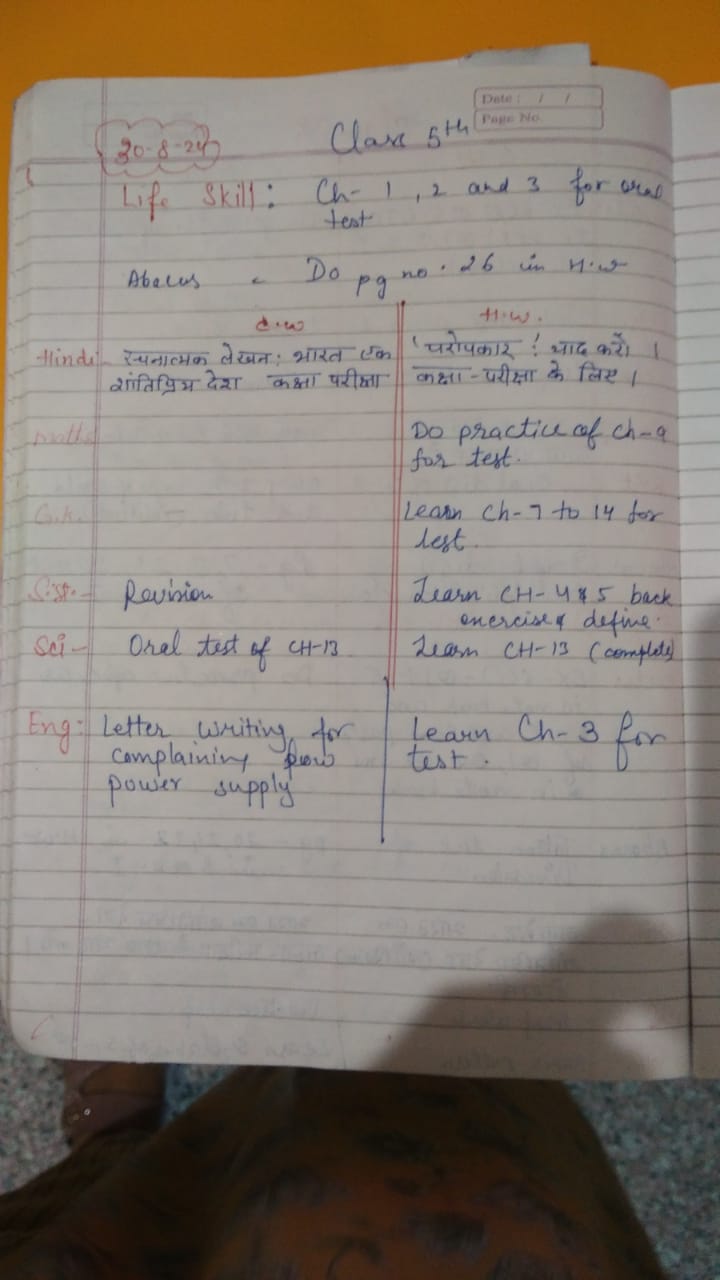 Date: / /
Page No.
30-8-24
Class 5th
Life Skill: Ch- 1, 2 and 3 for oral
test
Abacus - Do pg no. 26 in H.w
C.w
H.w.
Hindi- रचनात्मक लेखन: भारत एक
शांतिप्रिय देश कक्षा परीक्षा
'परोपकार' याद करो।
कक्षा-परीक्षा के लिए।
Maths
Do practice of Ch-9
for test.
G.K.
Learn Ch-7 to 14 for
test.
S.st.- Revision
Learn CH-4 & 5 back
exercise & define.
Sci- Oral test of CH-13
Learn CH-13 (complete)
Eng: Letter writing for
complaining
power supply
Learn Ch-3 for
test.